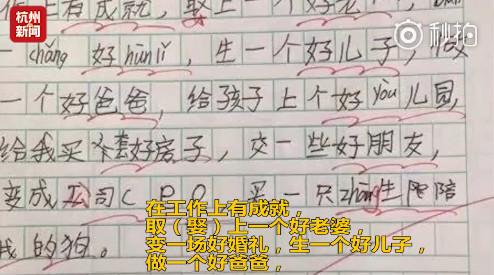 杭州
新闻
秒拍
作上有成就，取上一个好老
一chǎng好hūn lǐ，生一个好儿子，做
一个好爸爸，给孩子上个好yòu儿园，
给我买套好房子，交一些好朋友，
变成公司CPO，买一只zhōng生陪
我的狗。
在工作上有成就，
取（娶）上一个好老婆，
变一场好婚礼，生一个好儿子，
做一个好爸爸，